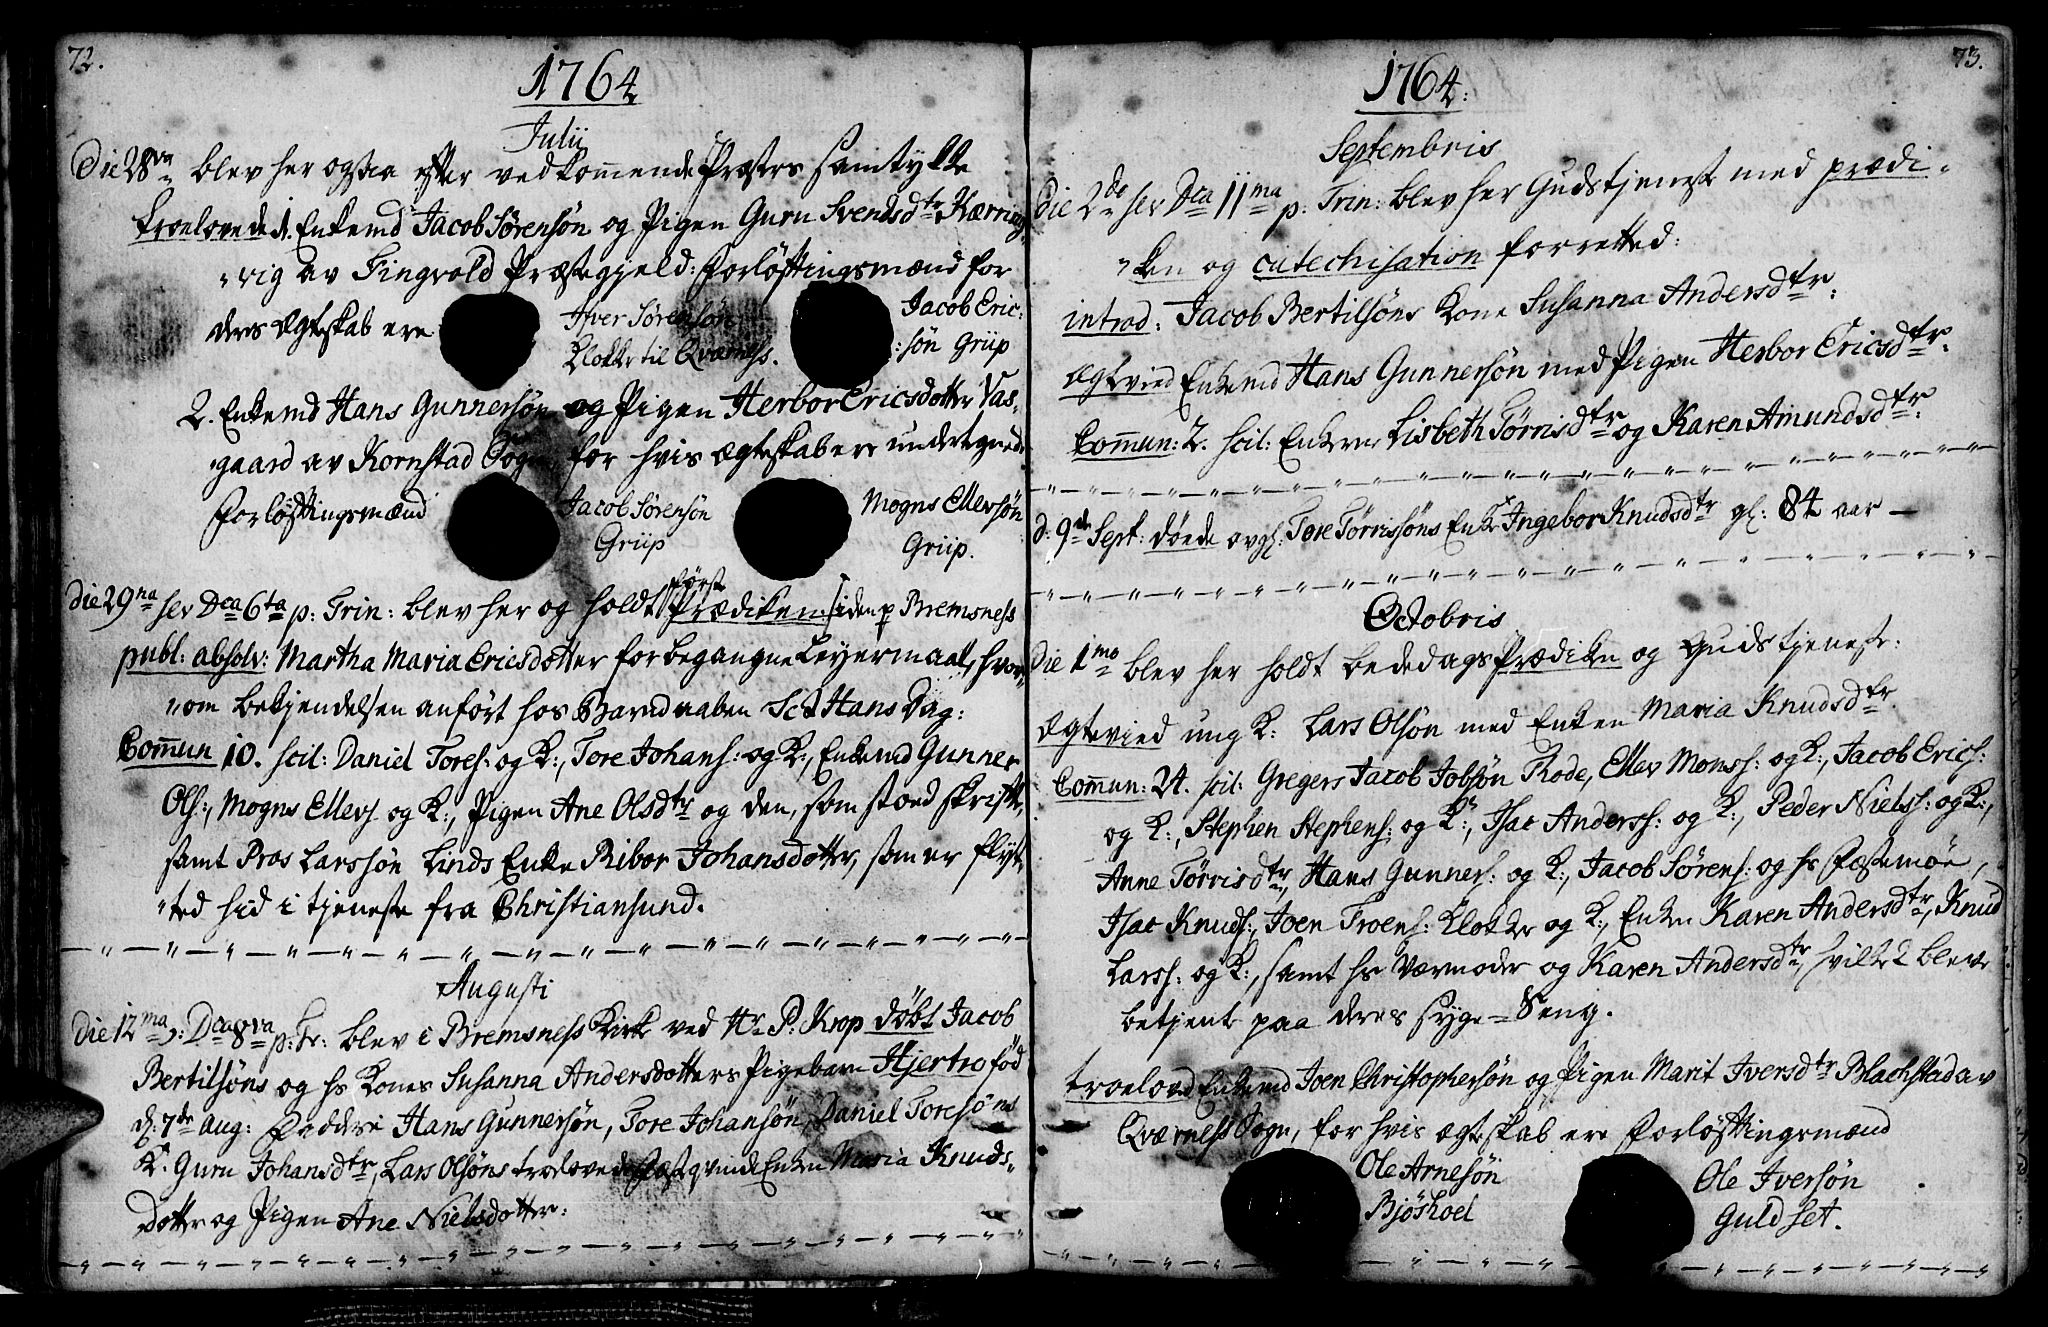 72.
1764
Julii
Die 28va blev her ogsaa efter vedkom̅ende Præsters samtykke
troelovede 1. Enkemd Jacob Sørensøn og Pigen Guru Svendsdtr Kærring-
"vig av Tingvold Præstegjeld: Forløftningsmænd for
deres Ægteskab ere
Iver Sørensøn
Klokker til Qværness.
Jacob Eric:
:søn Griip
2. Enkemd Hans Gunnersøn og Pigen Herbor Ericsdotter Vas-
"gaard av Kornstad Sogn, for hvis Ægteskab ere undertegnede
Forløftningsmænd
Jacob Sørensøn
Griip
Mogns Ellersøn
Griip.
Die 29na sev Dca 6ta p: Trin: blev her og holdt først Prædiken: siden p Bremsness
publ: absolv: Martha Maria Ericsdotter for begangne Leyermaal, hvor-
"om bekjendelsen anført hos Barnedaaben Sct Hans Dag:
Com̅un 10. scil: Daniel Tores: og K:, Tore Johans: og K:, Enkemd Gunner
Ols:, Mogns Ellers: og K:, Pigen Ane Olsdtr og den, som stoed skrifte,
samt Pros Larssøn Linds Enke Ribor Johansdotter, som er flyt-
"ted hid i tjeneste fra Christiansund.
Augusti
Die 12ma Dca 8va p: Tr: blev i Bremsness Kirke ved Hr P: Krop døbt Jacob
Bertilsøns og hs Kones Susanna Andersdotters Pigebarn Hjertro fød
d: 7de Aug: Faddere Hans Gunnersøn, Tore Johansøn, Daniel Toresøns
K: Guru Johansdtr, Lars Olsøns troelovede Fæsteqvinde Enken Maria Knuds-
dotter og Pigen Ane Nielsdotter:
73.
1764:
Septembris
Die 2de sev Dca 11ma p: Trin: blev her Gudstjeneste med prædi-
"ken og catechisation forretted:
introd: Jacob Bertilsøns Kone Susanna Andersdtr:
Ægtvied Enkemd Hans Gunnersøn med Pigen Herbor Ericsdtr:
Com̅un: 2. scil: Enkerne Lisbeth Tørrisdtr og Karen Amundsdtr:
d: 9de Sept: døede avgl: Tore Tørrissøns Enke Ingebor Knudsdtr gl: 84 aar —
Octobris
Die 1mo blev her holdt bededags Prædiken og Gudstjeneste:
Ægtevied ung K: Lars Olsøn med Enken Maria Knudsdtr.
Com̅un: 24. scil: Gregers Jacob Jobsøn Rode, Eller Monss: og K:, Jacob Erics:
og K:, Stephen Stephens: og K:, Isac Anderss: og K:, Peder Nielss: og K:,
Anne Tørrisdtr, Hans Gunners: og K:, Jacob Sørens: og hs Fæstemøe,
Isac Knuds:, Joen Troens: Klokker og K:, Enken Karen Andersdtr, Knud
Larss: og K:, samt hs Værmoder og Karen Andersdtr, hvilke 2 bleve
betjent paa deres syge-Seng.
troeloved Enkemd Joen Christophersøn og Pigen Marit Iversdtr Blachstad av
Qværness Sogn, for hvis Ægteskab ere Forløftningsmænd
Ole Arnesøn
Bjøshoel
Ole Iversøn
Guldset.